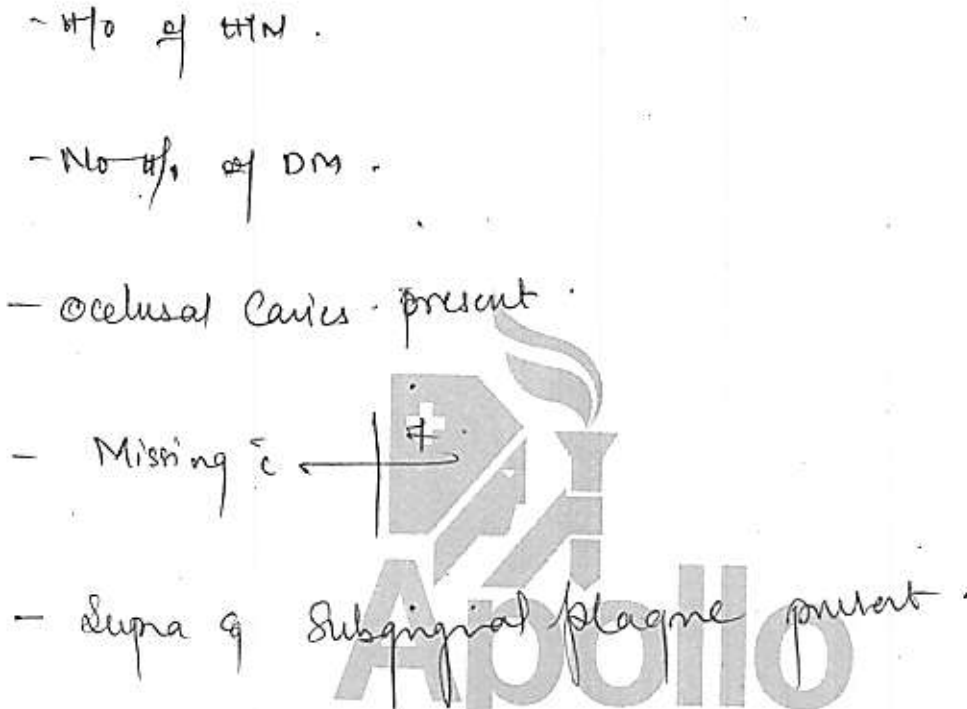 - H/O of HTN.
- No H/o of DM.
- Occlusal Caries present.
- Missing c̄ 7
- Supra & Subgingival plaque present.
Apollo